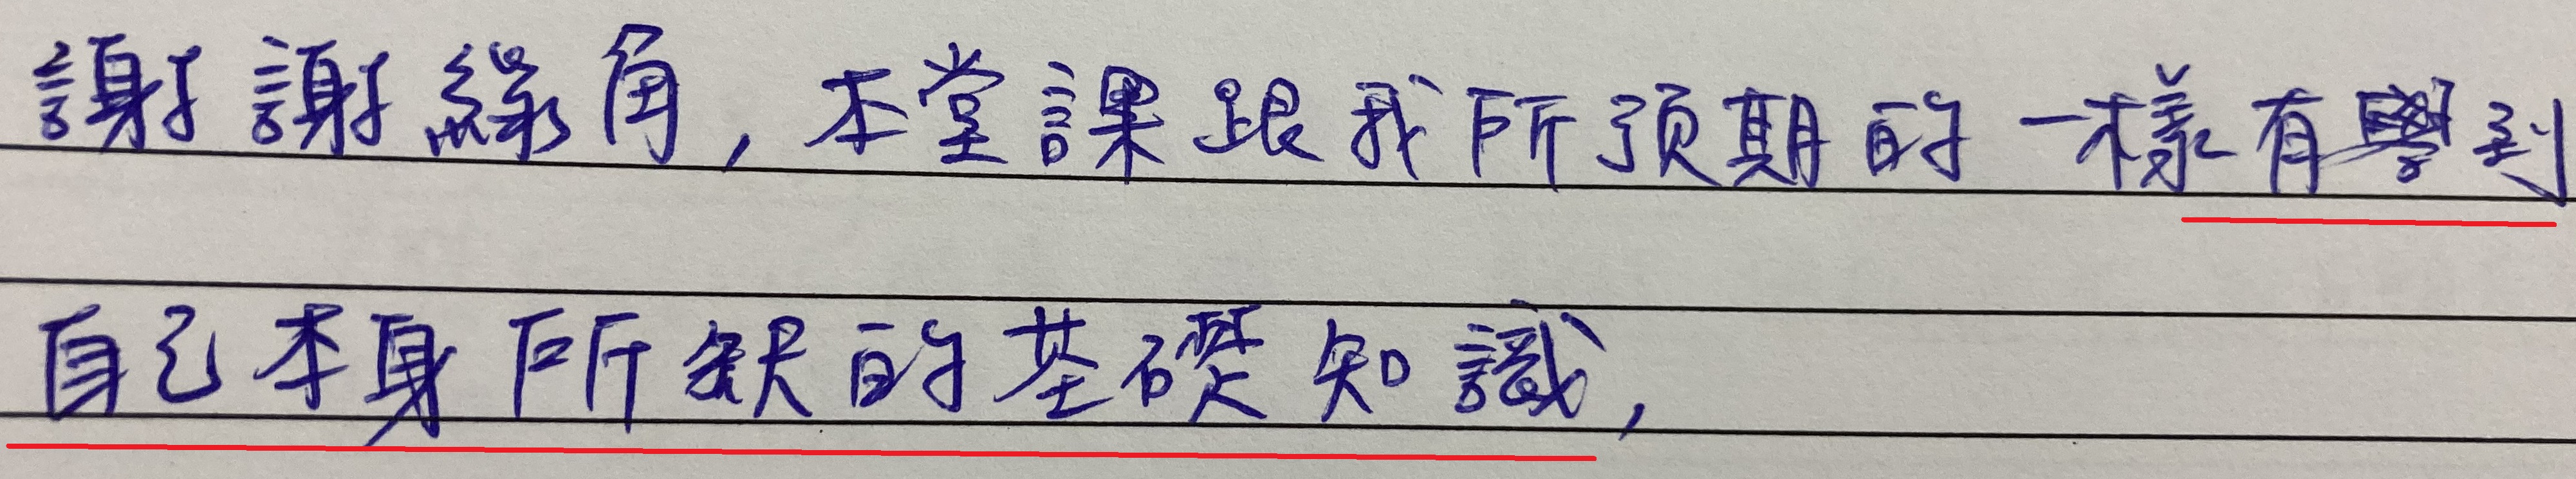 謝謝綠角,本堂課跟我所預期的一樣有學到
自己本身所缺的基礎知識,